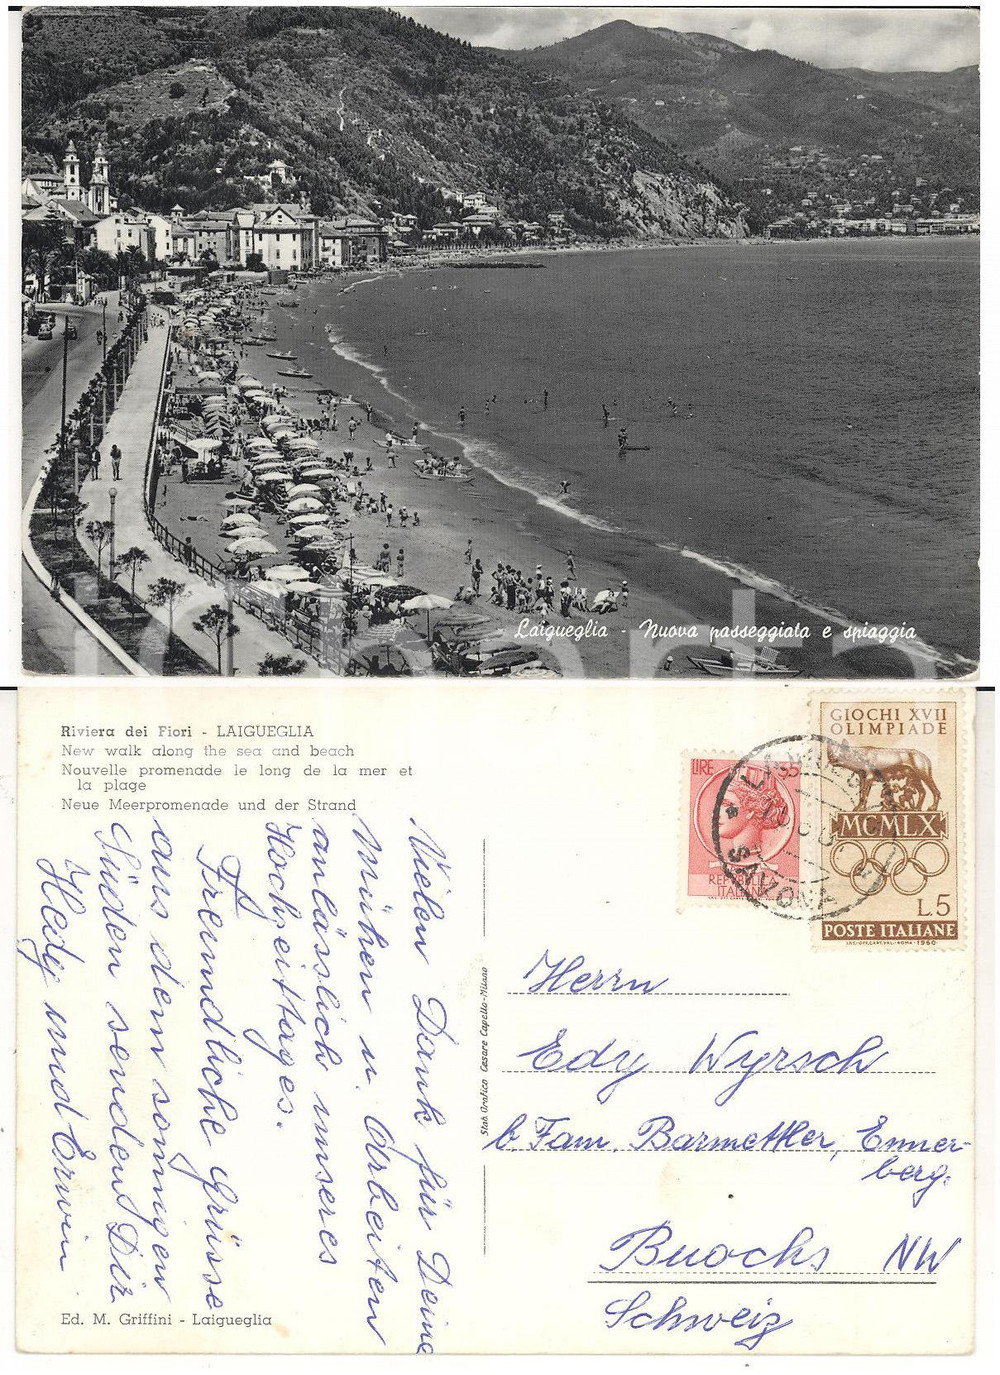 Laigueglia - Nuova passeggiata e spiaggia
Riviera dei Fiori - LAIGUEGLIA
New walk along the sea and beach
Nouvelle promenade le long de la mer et
la plage
Neue Meerpromenade und der Strand
Vielen Dank für Deine
Mühen u. Arbeiten
anlässlich unseres
Hochzeittages.
Freundliche Grüsse
aus dem sonnigen
Süden senden Dir
Hedy und Erwin
Ed. M. Griffini - Laigueglia
Stab. Grafico Cesare Capello-Milano
LIRE
REPUBBLICA
ITALIANA
GIOCHI XVII
OLIMPIADE
MCMLX
L.5
POSTE ITALIANE
I.P.S.-OFF.CART.VAL.-ROMA-1960
LAIGUEGLIA
SAVONA
Herrn
Edy Wyrsch
b. Fam. Barmettler, Enner-
berg.
Buochs NW
Schweiz